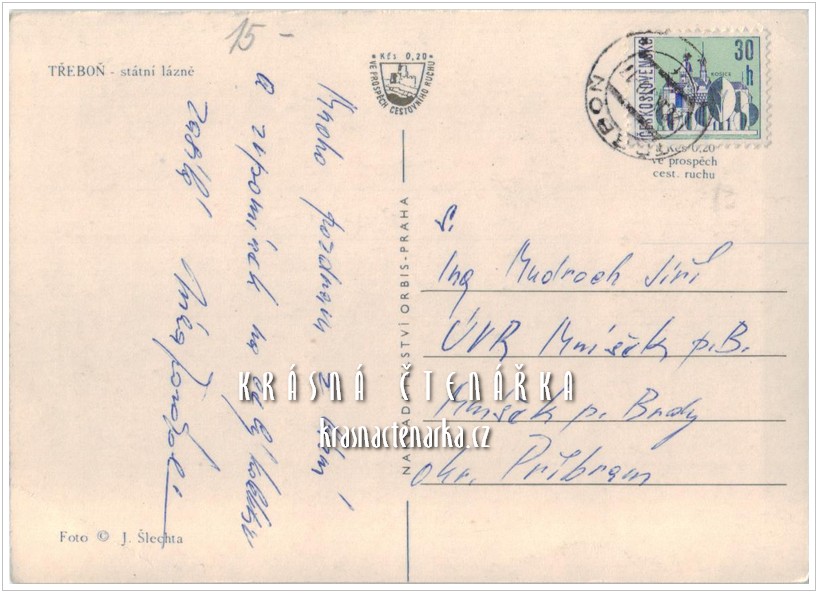 15-
TŘEBOŇ - státní lázně
* Kčs 0,20 *
VE PROSPĚCH CESTOVNÍHO RUCHU
ČESKOSLOVENSKO
30 h
KOŠICE
s Kčs 0,20
ve prospěch
cest. ruchu
Mnoho pozdravů z
a vzpomínek na
zasílá
NAKLADATELSTVÍ ORBIS-PRAHA
S.
Ing Mudroch Jiří
ÚVR Mníšek p.B.
Mníšek p. Brdy
okr. Příbram
KRÁSNÁ ČTENÁŘKA
krasnactenarka.cz
Foto © J. Šlechta